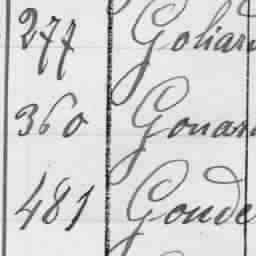 277 Goliard
360 Gouan
481 Goude